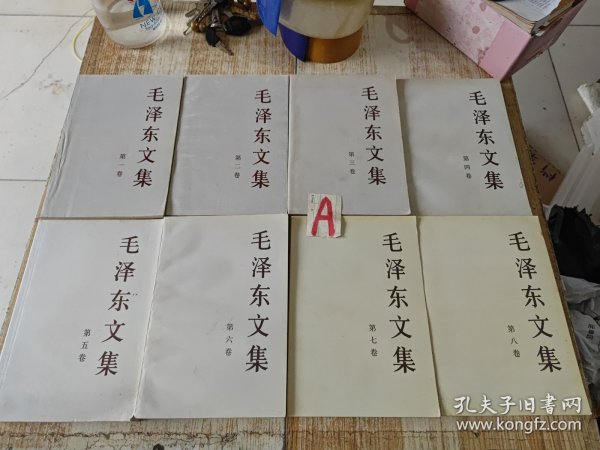 毛泽东文集
第一卷
毛泽东文集
第二卷
毛泽东文集
第三卷
毛泽东文集
第四卷
A
毛泽东文集
第五卷
毛泽东文集
第六卷
毛泽东文集
第七卷
毛泽东文集
第八卷
孔夫子旧书网
www.kongfz.com